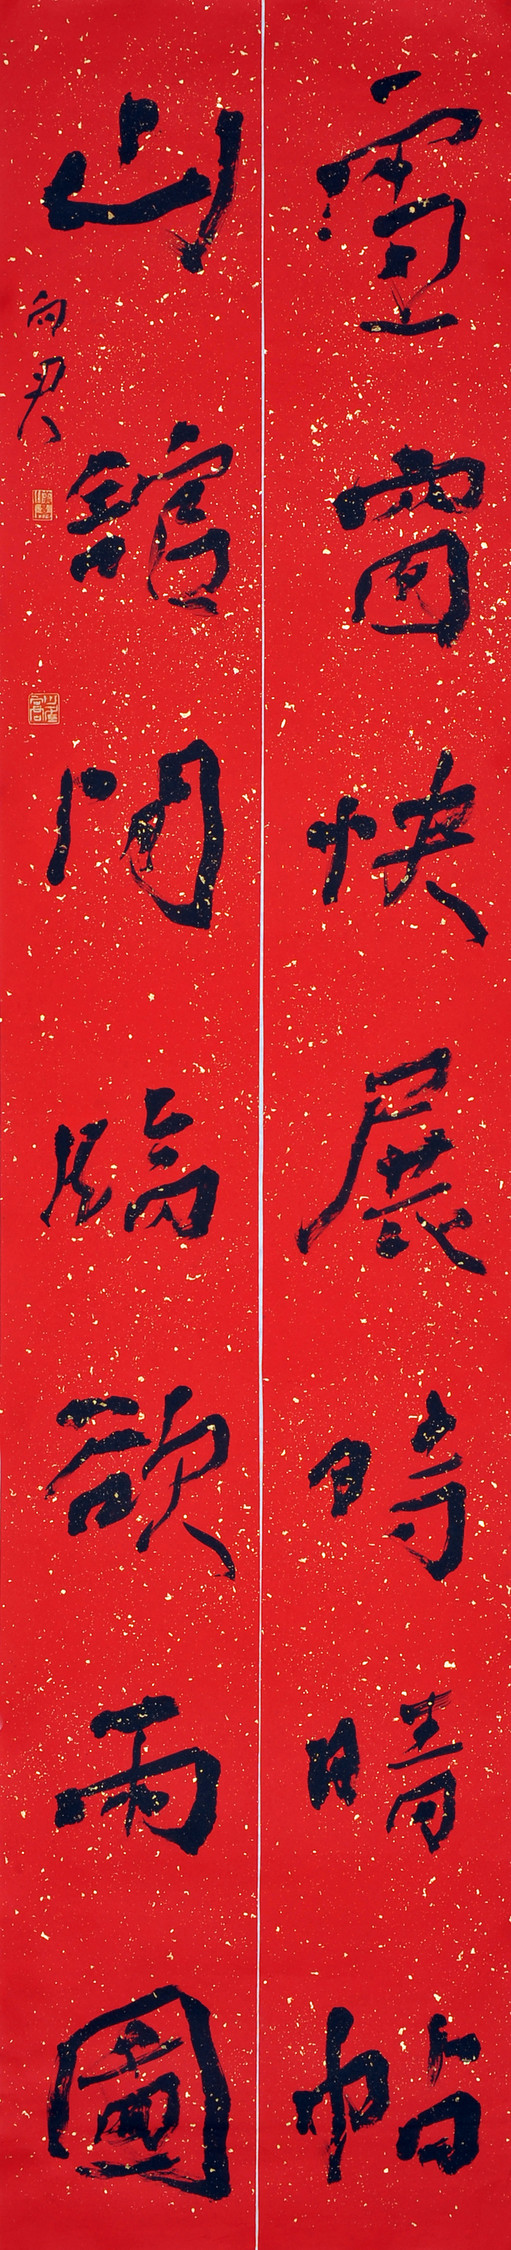 雪窗快展時晴帖
山館閒臨欲雨圖
向君